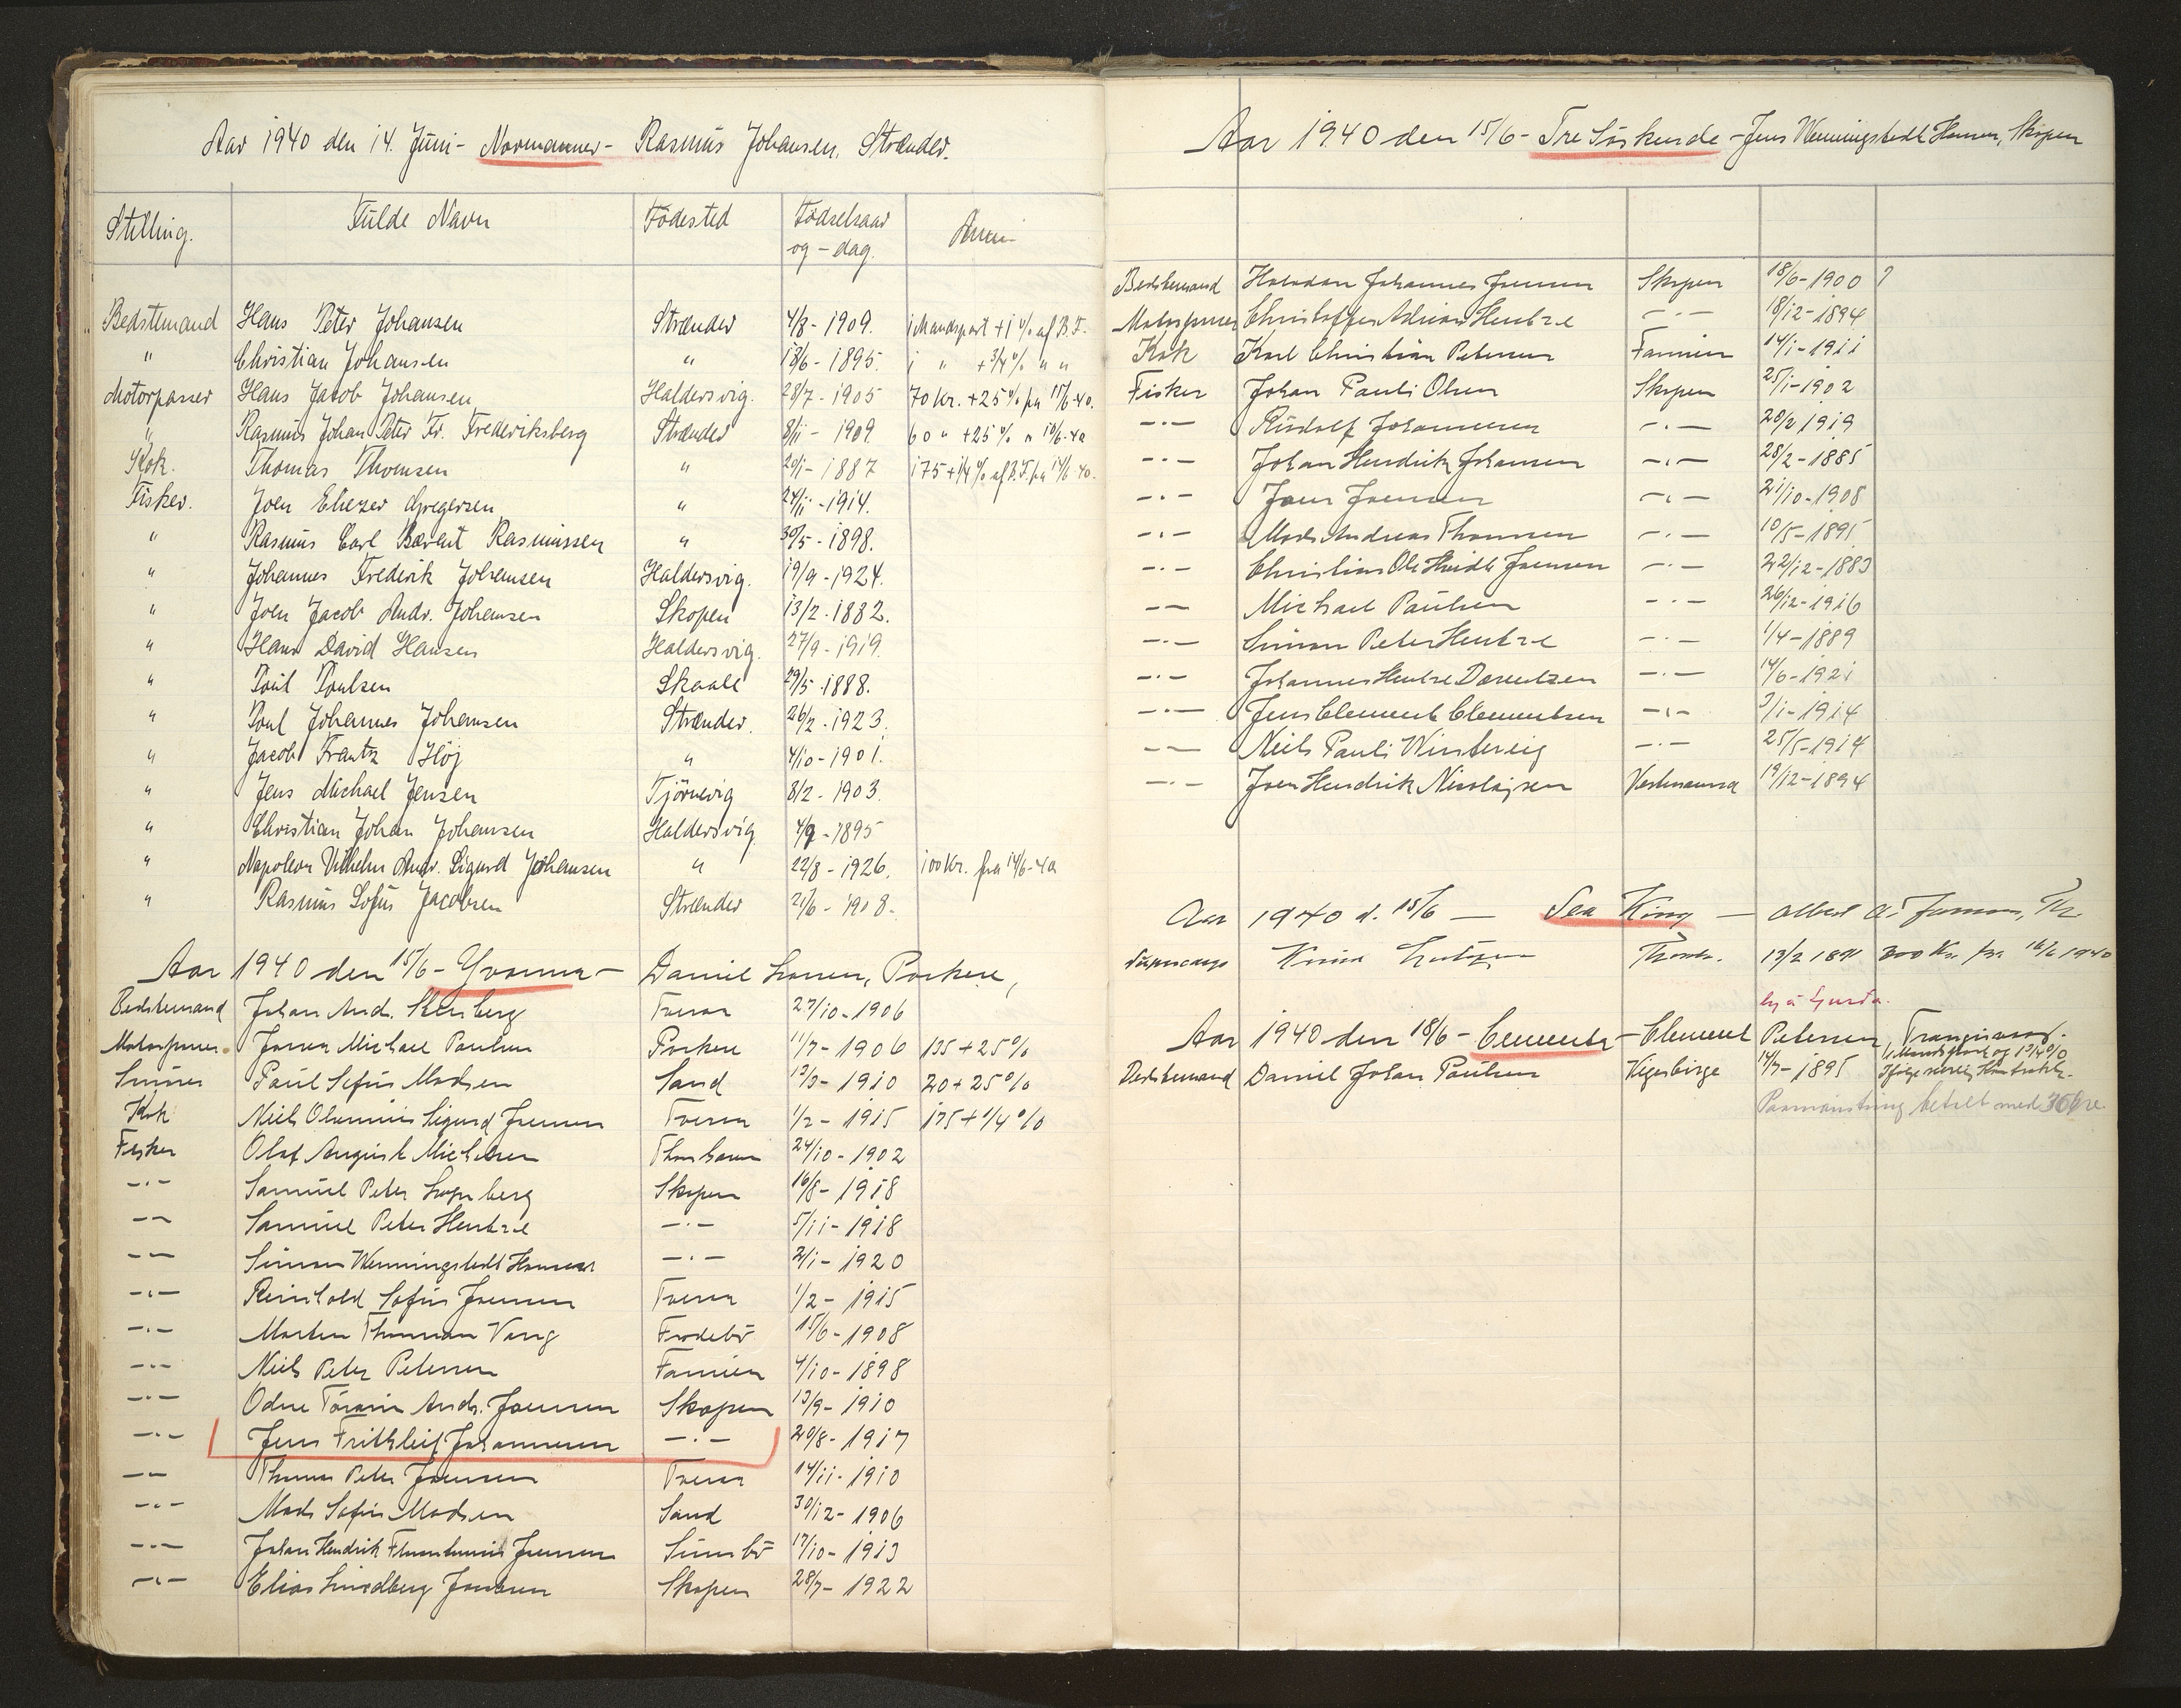 Aar 1940 den 14. Juni - Normanner - Rasmus Johansen, Strænder.
Stilling. Fulde Navn Födested Födselsaar og - dag. Anm.
Bedstemand Hans Peter Johansen Strænder 4/8 - 1909. 1 Mandspart + 1 % af B.F.
" Christian Johansen " 18/6 - 1895. 1 " + 3/4 % " "
Motorpasser Hans Jacob Johansen Haldersvig. 28/7 - 1905 70 Kr. + 25 % fra 11/6-40.
" Rasmus Johan Peter Fr. Frederiksberg Strænder 8/11 - 1909 60 " + 25 % " 10/6-40
Kok. Thomas Thomsen " 20/1 - 1887 175 + 1/4 % af B.F. fra 14/6-40.
Fisker. Joen Eliezer Gregersen " 24/11 - 1914.
" Rasmus Carl Barent Rasmussen " 30/5 - 1898.
" Johannes Frederik Johansen Haldersvig. 19/9 - 1924.
" Joen Jacob Andr. Johansen Skopen 13/2 - 1882.
" Hans David Hansen Haldersvig. 27/9 - 1919.
" Poul Poulsen Skaale 29/5 - 1888.
" Poul Johannes Johansen Strænder. 26/2 - 1923.
" Jacob Frantz Höj " 4/10 - 1901.
" Jens Michael Jensen Tjörnevig 8/2 - 1903.
" Christian Johan Johansen Haldersvig 4/9 - 1895
" Napoleon Vilhelm Andr. Sigurd Johansen " 22/8 - 1926. 100 Kr. fra 14/6-40
" Rasmus Sofus Jacobsen Strænder 21/6 - 1918.
Aar 1940 den 15/6 - Yvonna - Daniel Larsen, Porkere,
Bedstemand Johan And. Stenberg Tveraa 27/10 - 1906
Motorpasser. Jonn Michael Poulsen Porkere 11/7 - 1906 135 + 25 %
Smører Paul Sofus Madsen Sand 13/3 - 1910 20 + 25 %
Kok Niels Olavius Sigurd Joensen Tveraa 1/2 - 1915 175 + 1/4 %
Fisker Olaf August Michelsen Thorshavn 24/10 - 1902
-"- Samuel Peter Høgnberg Skopen 16/8 - 1918
-"- Samuel Peter Hentze -"- 5/11 - 1918
-"- Simon Wenningstedt Hansen -"- 2/1 - 1920
-"- Reinhold Sofus Joensen Tveraa 1/2 - 1915
-"- Morten Thomsen Vang Frodebö 15/6 - 1908
-"- Niels Peter Petersen Famien 4/10 - 1898
-"- Odne Andr. Joensen Skopen 13/9 - 1910
-"- Jens Frithleif Johannesen -"- 20/8 - 1917
-"- Thomas Peter Joensen Tveraa 14/11 - 1910
-"- Mads Sofus Madsen Sand 30/12 - 1906
-"- Johan Hendrik Joensen Sumbö 17/10 - 1913
-"- Elias Lindberg Jensen Skopen 28/7 - 1922
Aar 1940 den 15/6 - Tre Söskende - Jens Wenningstedt Hansen, Skopen
Bedstemand Halvdan Johannes Joensen Skopen 18/6 - 1900 ?
Motorpasser Christoffer Adrian Hentze -"- 18/12 - 1894
Kok Karl Christian Petersen Famien 14/1 - 1911
Fisker Johan Pauli Olsen Skopen 25/1 - 1902
-"- Rudolf Johannesen -"- 20/2 1919
-"- Johan Hendrik Johansen -"- 28/2 - 1885
-"- Joen Joensen -"- 21/10 - 1908
-"- Mads Andreas Thomsen -"- 10/5 - 1895
-"- Christian Ole Joensen -"- 22/12 - 1883
-"- Michael Paulsen -"- 26/12 - 1916
-"- Simon Peter Hentze -"- 1/4 - 1889
-"- Johannes Hentze Darentzen -"- 14/6 - 1921
-"- Jens Clement Clementsen -"- 3/1 - 1914
-"- Niels Pauli Wintereig -"- 25/5 - 1914
-"- Joen Hendrik Nicolajsen Vestmanna 19/12 - 1894
Aar 1940 d. 15/6 - Sea King - Albert A. Joensen, Th.
Supercargo Thorsh. 13/2 1891 300 Kr. fra 16/6 1940
Aar 1940 den 18/6 - Cementa - Clement Petersen, Trangisvaag.
Bedstemand Daniel Johan Paulsen 14/7 - 1895 1 Mandspart og 1 3/4 %
Ifölge særlig Kontrakt.
Paamönstring betalt med 36 Kr.